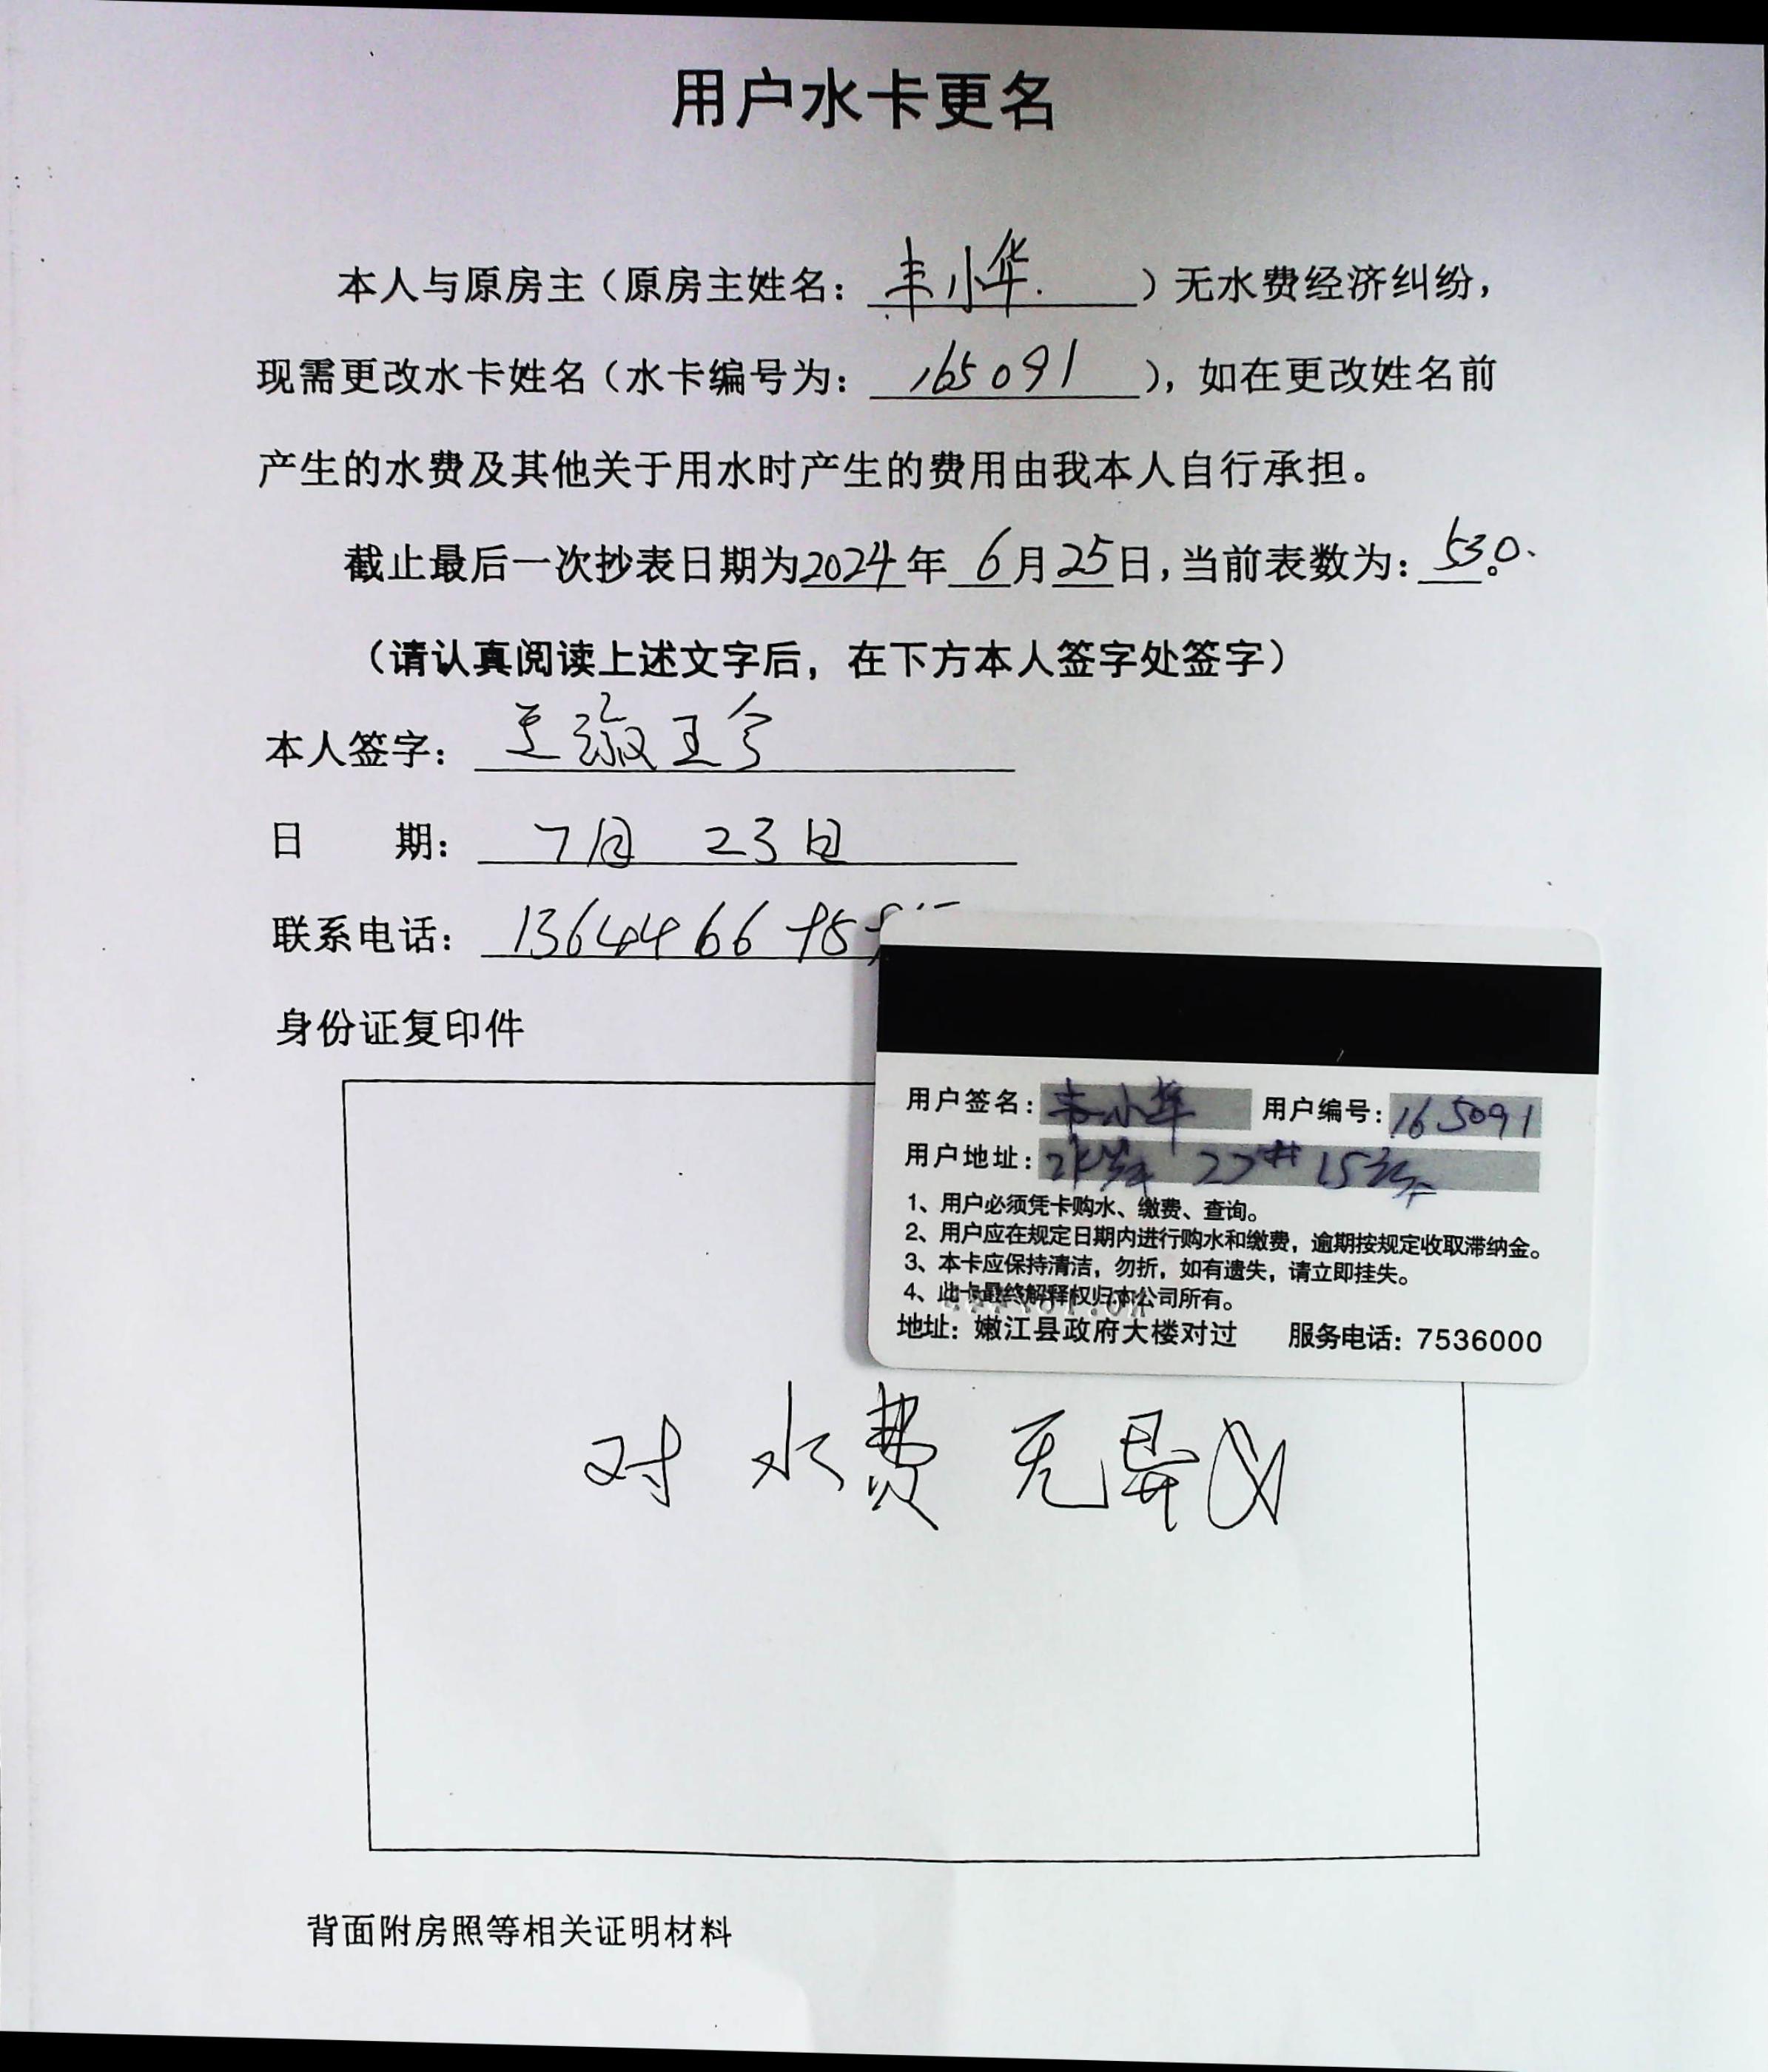 用户水卡更名
本人与原房主（原房主姓名：丰小华.）无水费经济纠纷，
现需更改水卡姓名（水卡编号为：165091），如在更改姓名前
产生的水费及其他关于用水时产生的费用由我本人自行承担。
截止最后一次抄表日期为2024年6月25日，当前表数为：530.。
（请认真阅读上述文字后，在下方本人签字处签字）
本人签字：王淑玲
日 期：7月 23日
联系电话：1364466
身份证复印件
用户签名：丰小华 用户编号：165091
用户地址：22# 15
1、用户必须凭卡购水、缴费、查询。
2、用户应在规定日期内进行购水和缴费，逾期按规定收取滞纳金。
3、本卡应保持清洁，勿折，如有遗失，请立即挂失。
4、此卡最终解释权归本公司所有。
地址：嫩江县政府大楼对过 服务电话：7536000
对 水费 无异议
背面附房照等相关证明材料